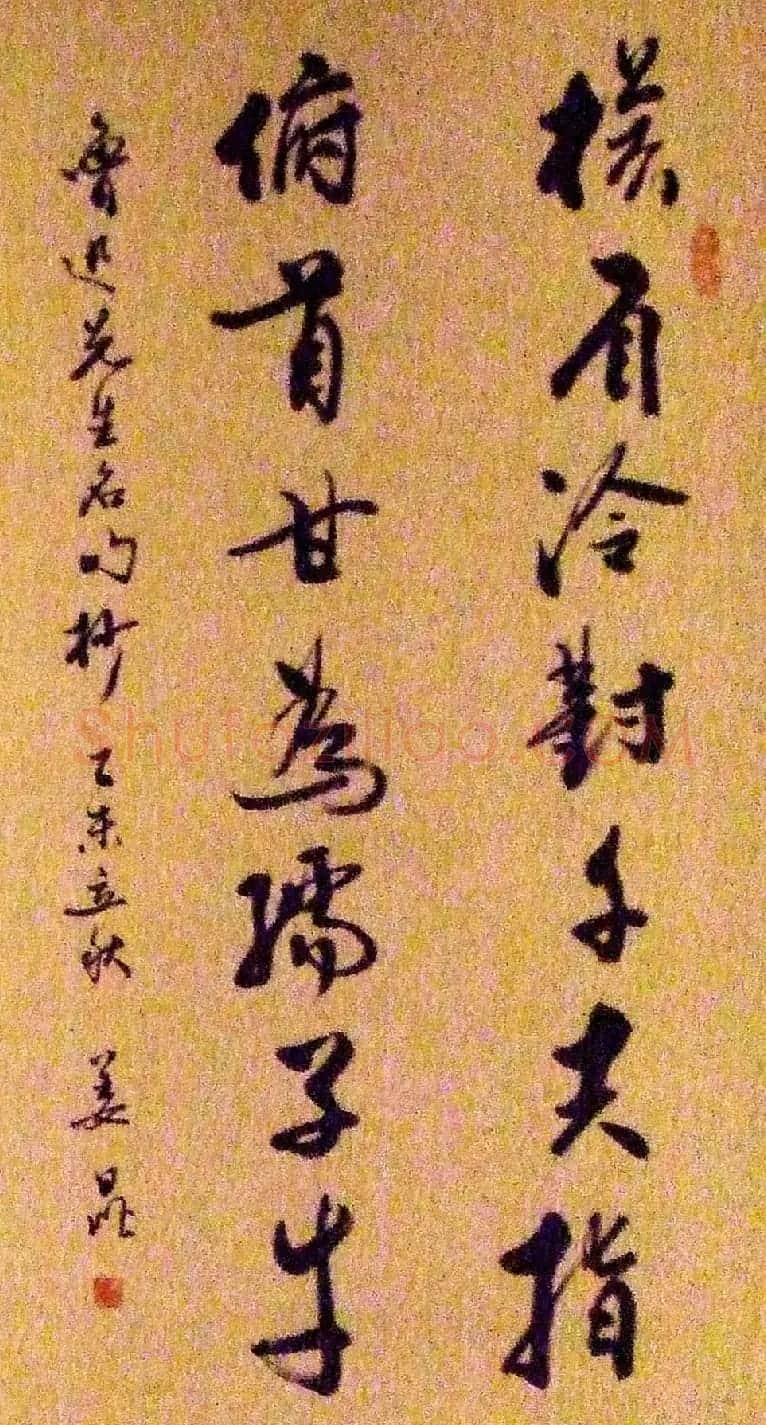 橫眉冷對千夫指
俯首甘為孺子牛
魯迅先生名句抄 乙未立秋 姜晶